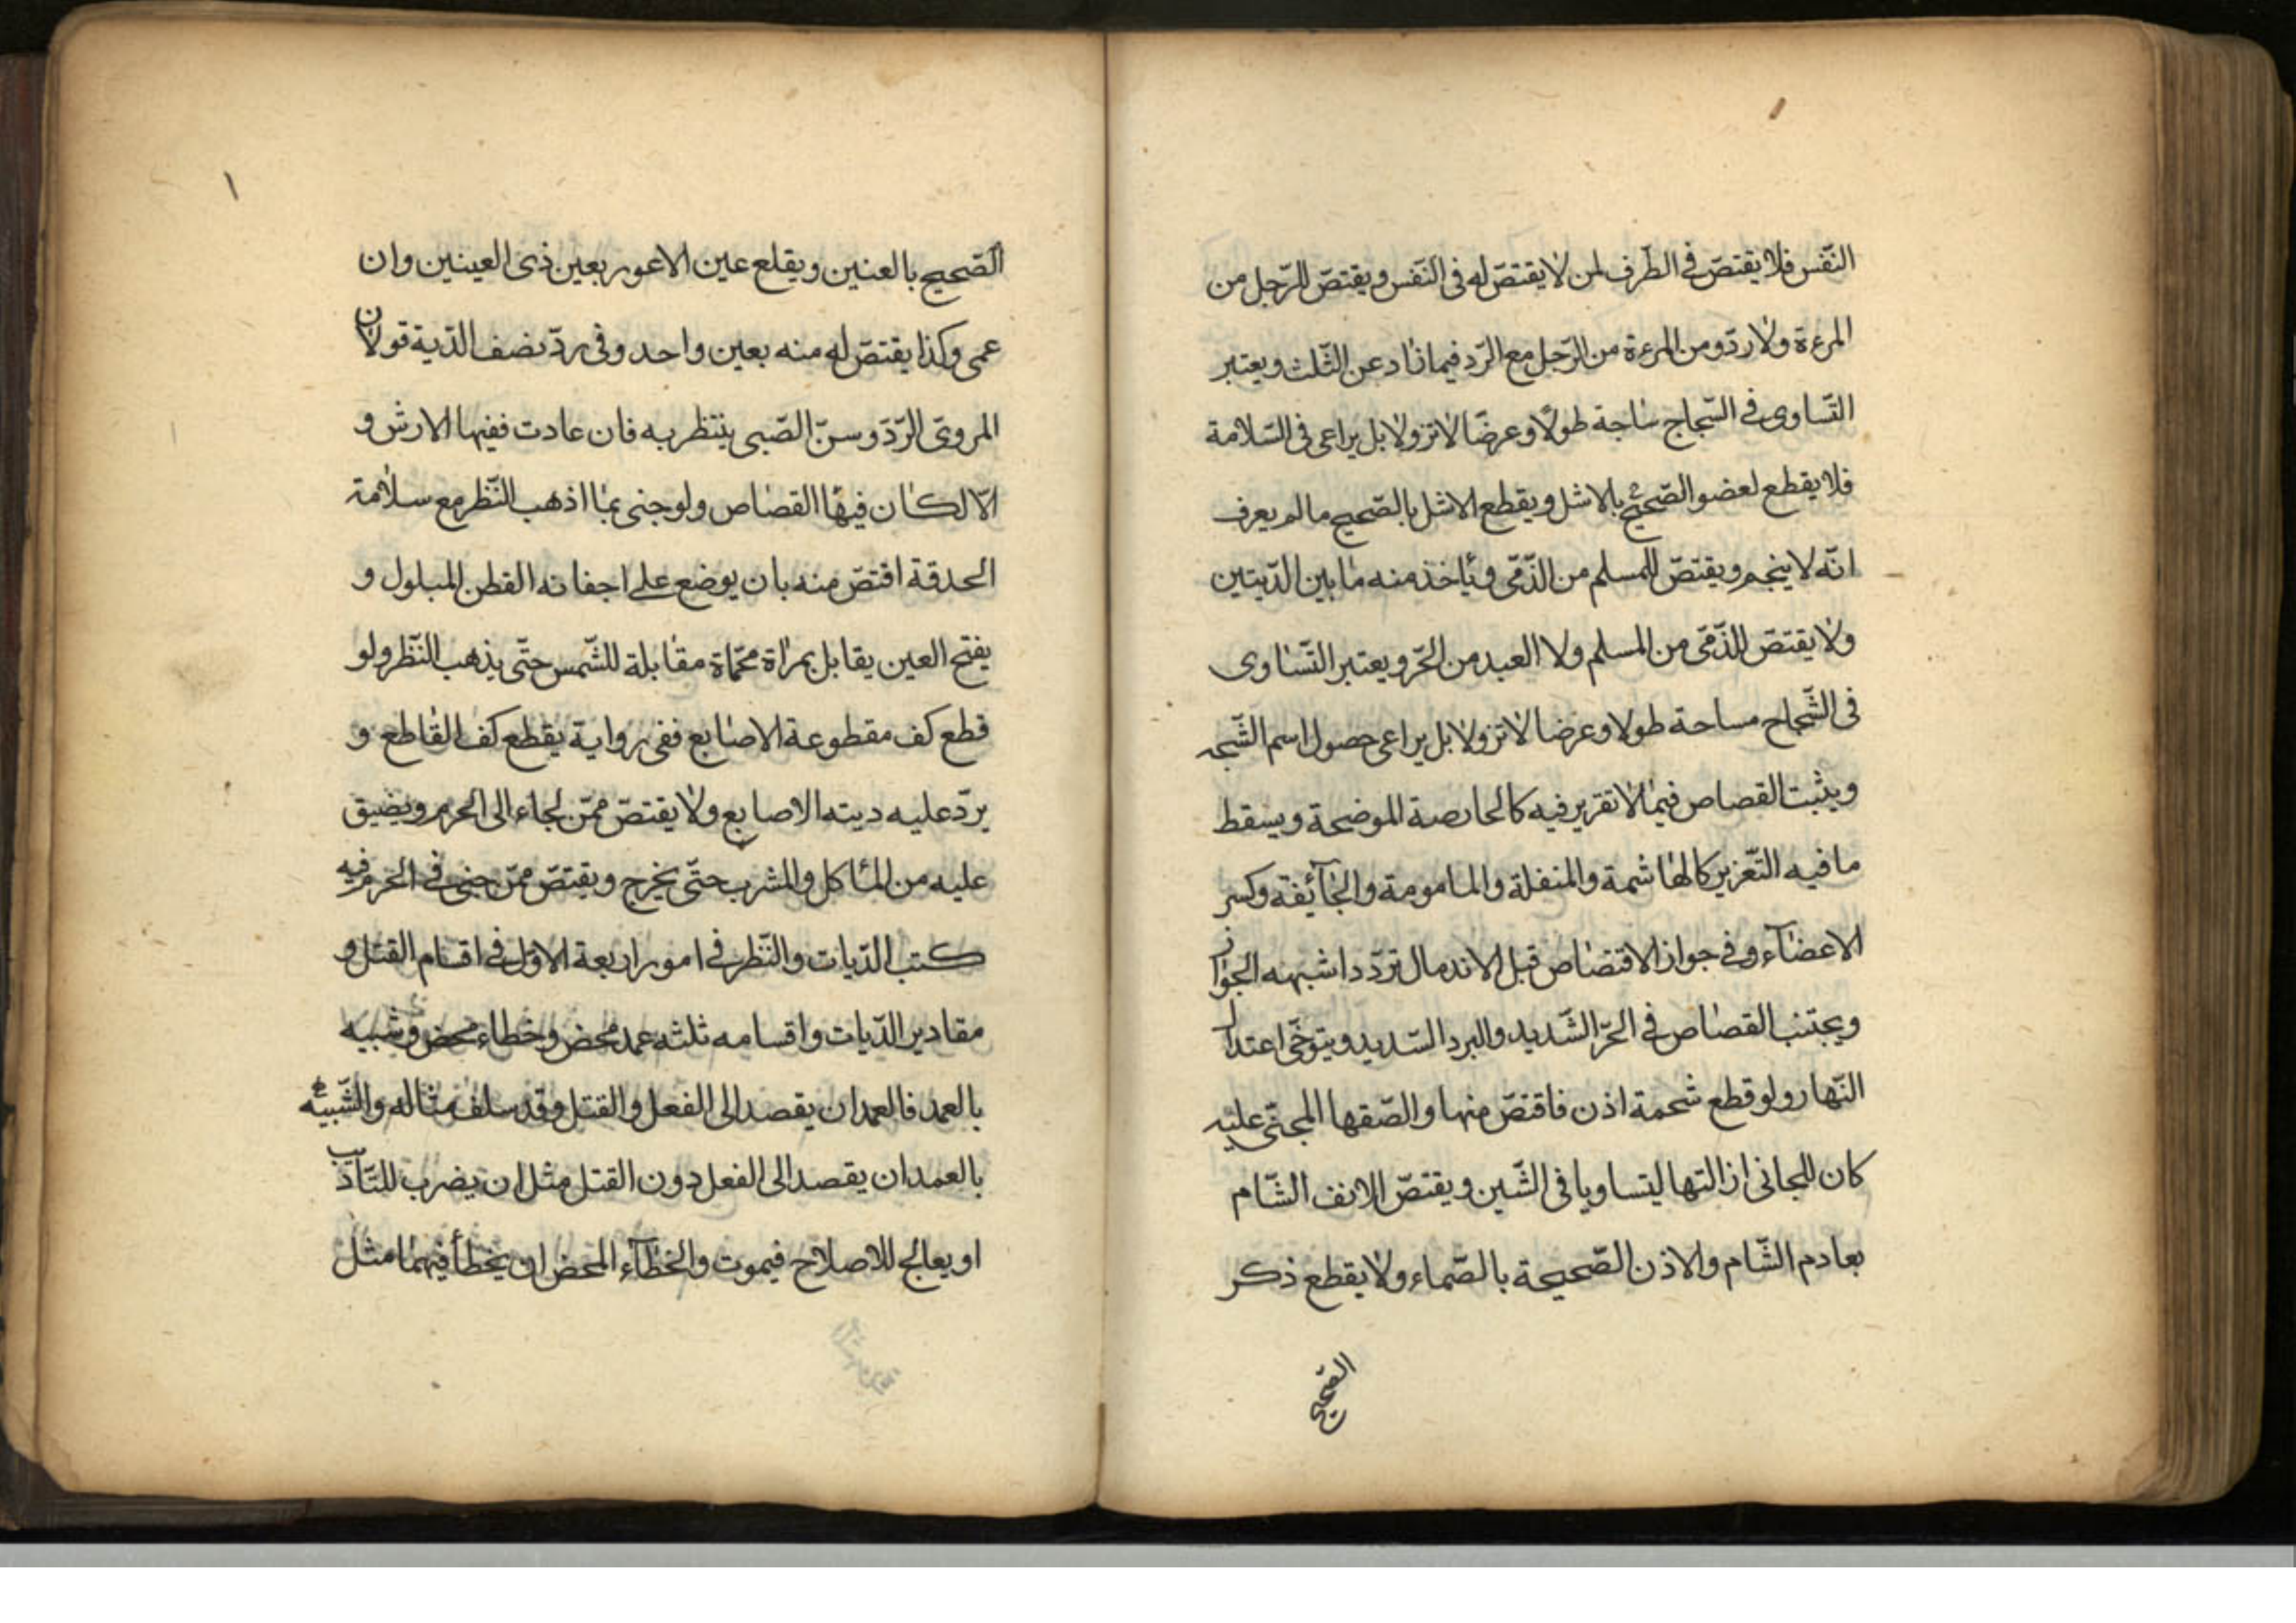 النّفس فلا يقتصّ فى الطّرف لمن لا يقتصّ له فى النّفس ويقتصّ للرّجل من
المرءة ولا ردّ ومن المرءة من الرّجل مع الرّد فيما زاد عن الثّلث ويعتبر
التّساوى فى الشّجاج ساجة طولًا وعرضًا لا نزولا بل يراعى فى السّلامة
فلا يقطع لعضو الصّحيح بالاشل ويقطع الاشل بالصّحيح ما لم يعرف
انّه لا ينجم ويقتصّ للمسلم من الذّمّى ويأخذ منه ما بين الدّيتين
ولا يقتصّ للذّمّى من المسلم ولا العبد من الحّر ويعتبر التّساوى
فى الشّجاج مساحة طولا وعرضا لا نزولا بل يراعى حصول اسم الشّجه
ويثبت القصاص فيما لا تقرير فيه كالحارصة الموضحة ويسقط
ما فيه التّعزير كالهاشمة والمنقلة والمامومة والجآئفة وكسر
الاعضآء وفى جواز الاقتصاص قبل الاندمال تردّد اشبهه الجواز
ويجتنب القصاص فى الحرّ الشّديد والبرد الشديد ويتوخّى اعتدال
النّهار ولو قطع شحمة اذن فاقتصّ منها والصّقها المجنّى عليه
كان للجانى ازالتها ليتساويا فى الشّين ويقتصّ الانف الشّام
بعادم الشّام والاذن الصّحيحة بالصّماء ولا يقطع ذكر
الصّحيح
الصّحيح بالعنين ويقلع عين الاعور بعين ذى العينين وان
عمى وكذا يقتصّ له منه بعين واحد وفى ردّ نصف الدّية قولان
المروىّ الرّدّ وسنّ الصّبى ينتظر به فان عادت ففيها الارش و
الّا لكان فيها القصاص ولو جنى بما اذهب النّظر مع سلامة
الحدقة اقتصّ منه بان يوضع على اجفانه القطن المبلول و
يفتح العين يقابل بمراة محمّاة مقابلة للشّمس حتّى يذهب النّظر ولو
قطع كف مقطوعة الاصابع ففى رواية يقطع كف القاطع و
يردّ عليه ديته الاصابع ولا يقتصّ ممّن لجاء الى الحرم ويضيق
عليه من المأكل والمشرب حتّى يخرج ويقتصّ ممّن جنى فى الحرم فيه
كتب الدّيات والنّظر فى امور اربعة الاوّل فى اقسام القتل و
مقادير الدّيات واقسامه ثلثه عمد محض وخطاء محض وشبيه
بالعمد فالعمد ان يقصد الى الفعل والقتل وقد سلف مثاله والشّبيه
بالعمد ان يقصد الى الفعل دون القتل مثل ان يضرب للتّاديب
او يعالج للاصلاح فيموت والخطآء المحض ان يخطأ فيهما مثل